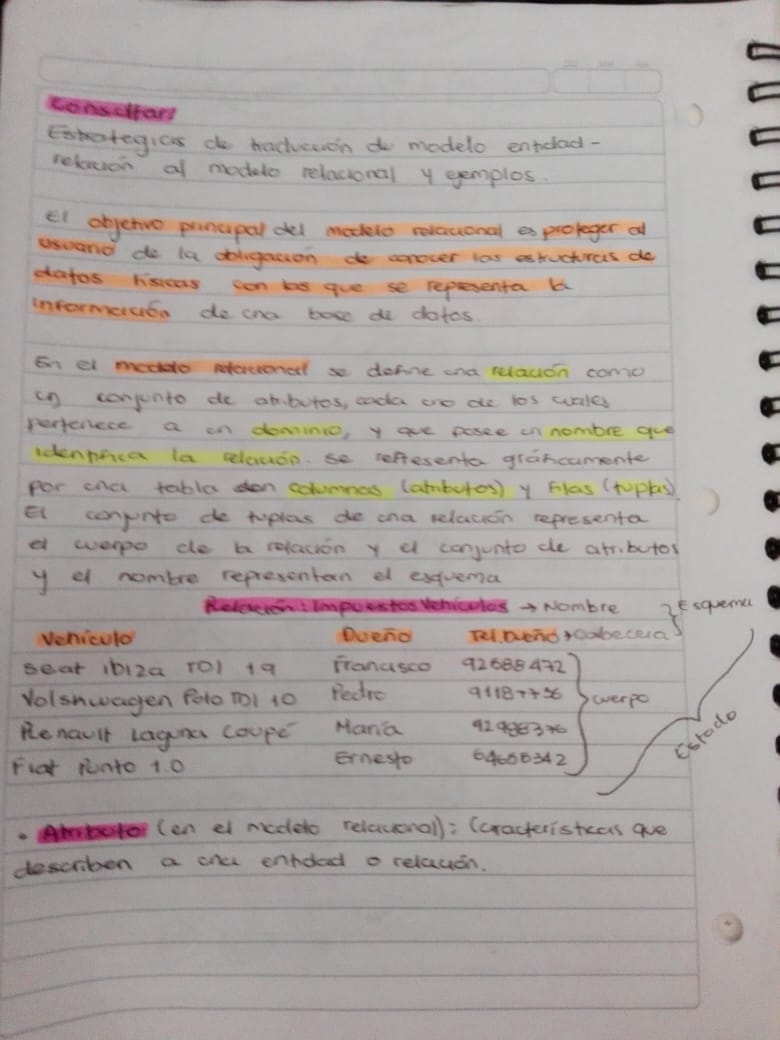 Consultar:
Estrategias de traducción de modelo entidad-
relación al modelo relacional y ejemplos.
El objetivo principal del modelo relacional es proteger al
usuario de la obligación de conocer las estructuras de
datos físicas con las que se representa la
información de una base de datos.
En el modelo relacional se define una relación como
un conjunto de atributos, cada uno de los cuales
pertenece a un dominio, y que posee un nombre que
identifica la relación. se representa gráficamente
por una tabla con columnas (atributos) y filas (tuplas).
El conjunto de tuplas de una relación representa
el cuerpo de la relación y el conjunto de atributos
y el nombre representan el esquema
Relación: Impuestos Vehículos → Nombre } Esquema
Vehículo Dueño Tel. Dueño → Cabecera
Seat ibiza TDI 1.9 Francisco 92688472
Volshwagen Polo TDI 1.0 Pedro
cuerpo
Renault Laguna Coupé María
Estado
Fiat Punto 1.0 Ernesto 64655342
• Atributo (en el modelo relacional): Características que
describen a una entidad o relación.